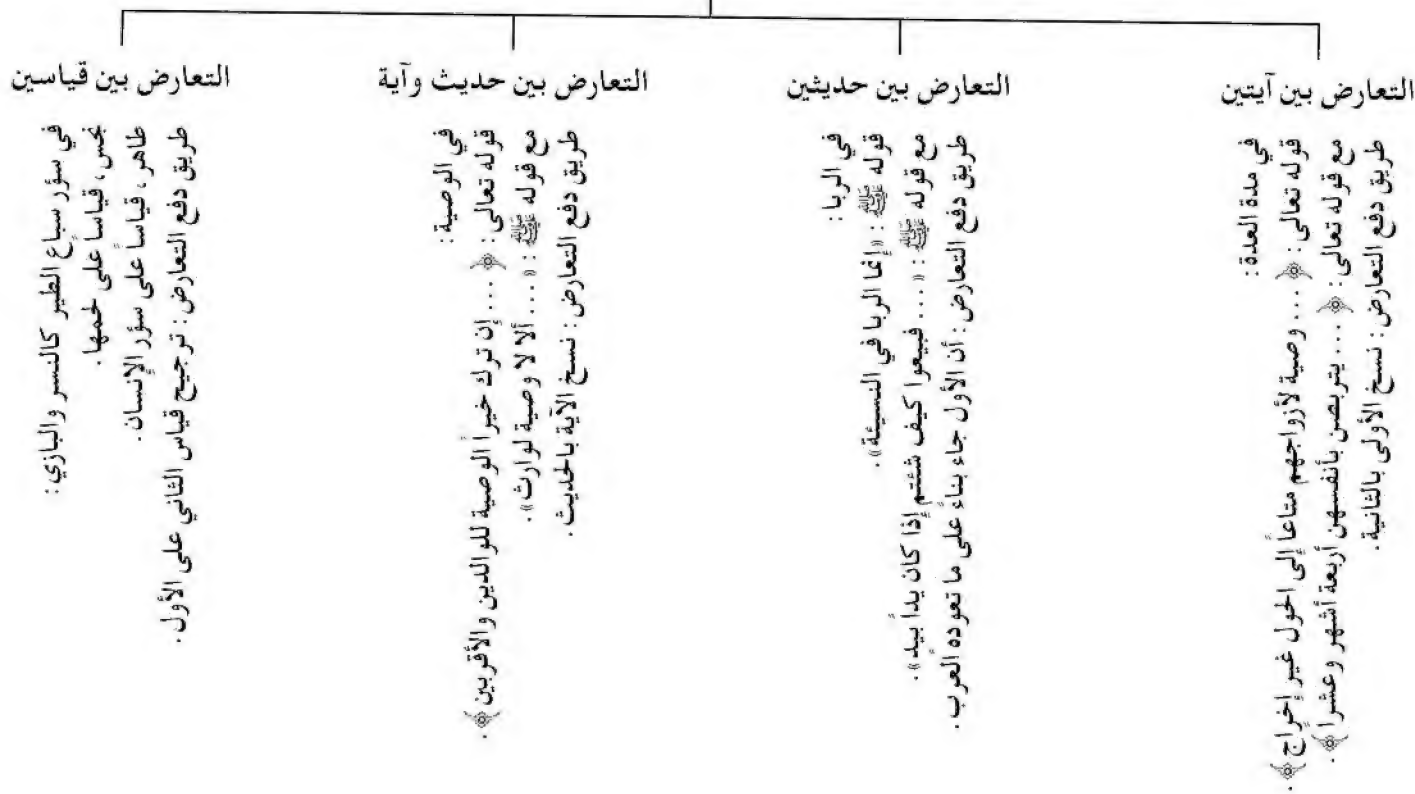 التعارض بين آيتين
في مدة العدة :
قوله تعالى : ﴿ ... وصية لأزواجهم متاعاً إلى الحول غير إخراج ﴾ .
مع قوله تعالى : ﴿ ... يتربصن بأنفسهن أربعة أشهر وعشرا ﴾ .
طريق دفع التعارض : نسخ الأولى بالثانية .
التعارض بين حديثين
في الربا :
قوله ﷺ : « إنما الربا في النسيئة » .
مع قوله ﷺ : « ... فبيعوا كيف شئتم إذا كان يداً بيد » .
طريق دفع التعارض : أن الأول جاء بناءً على ما تعوده العرب .
التعارض بين حديث وآية
في الوصية :
قوله تعالى : ﴿ ... إن ترك خيراً الوصية للوالدين والأقربين ﴾ .
مع قوله ﷺ : « ... ألا لا وصية لوارث » .
طريق دفع التعارض : نسخ الآية بالحديث .
التعارض بين قياسين
في سؤر سباع الطير كالنسر والبازي :
نجس ، قياساً على لحمها .
طاهر ، قياساً على سؤر الإنسان .
طريق دفع التعارض : ترجيح قياس الثاني على الأول .